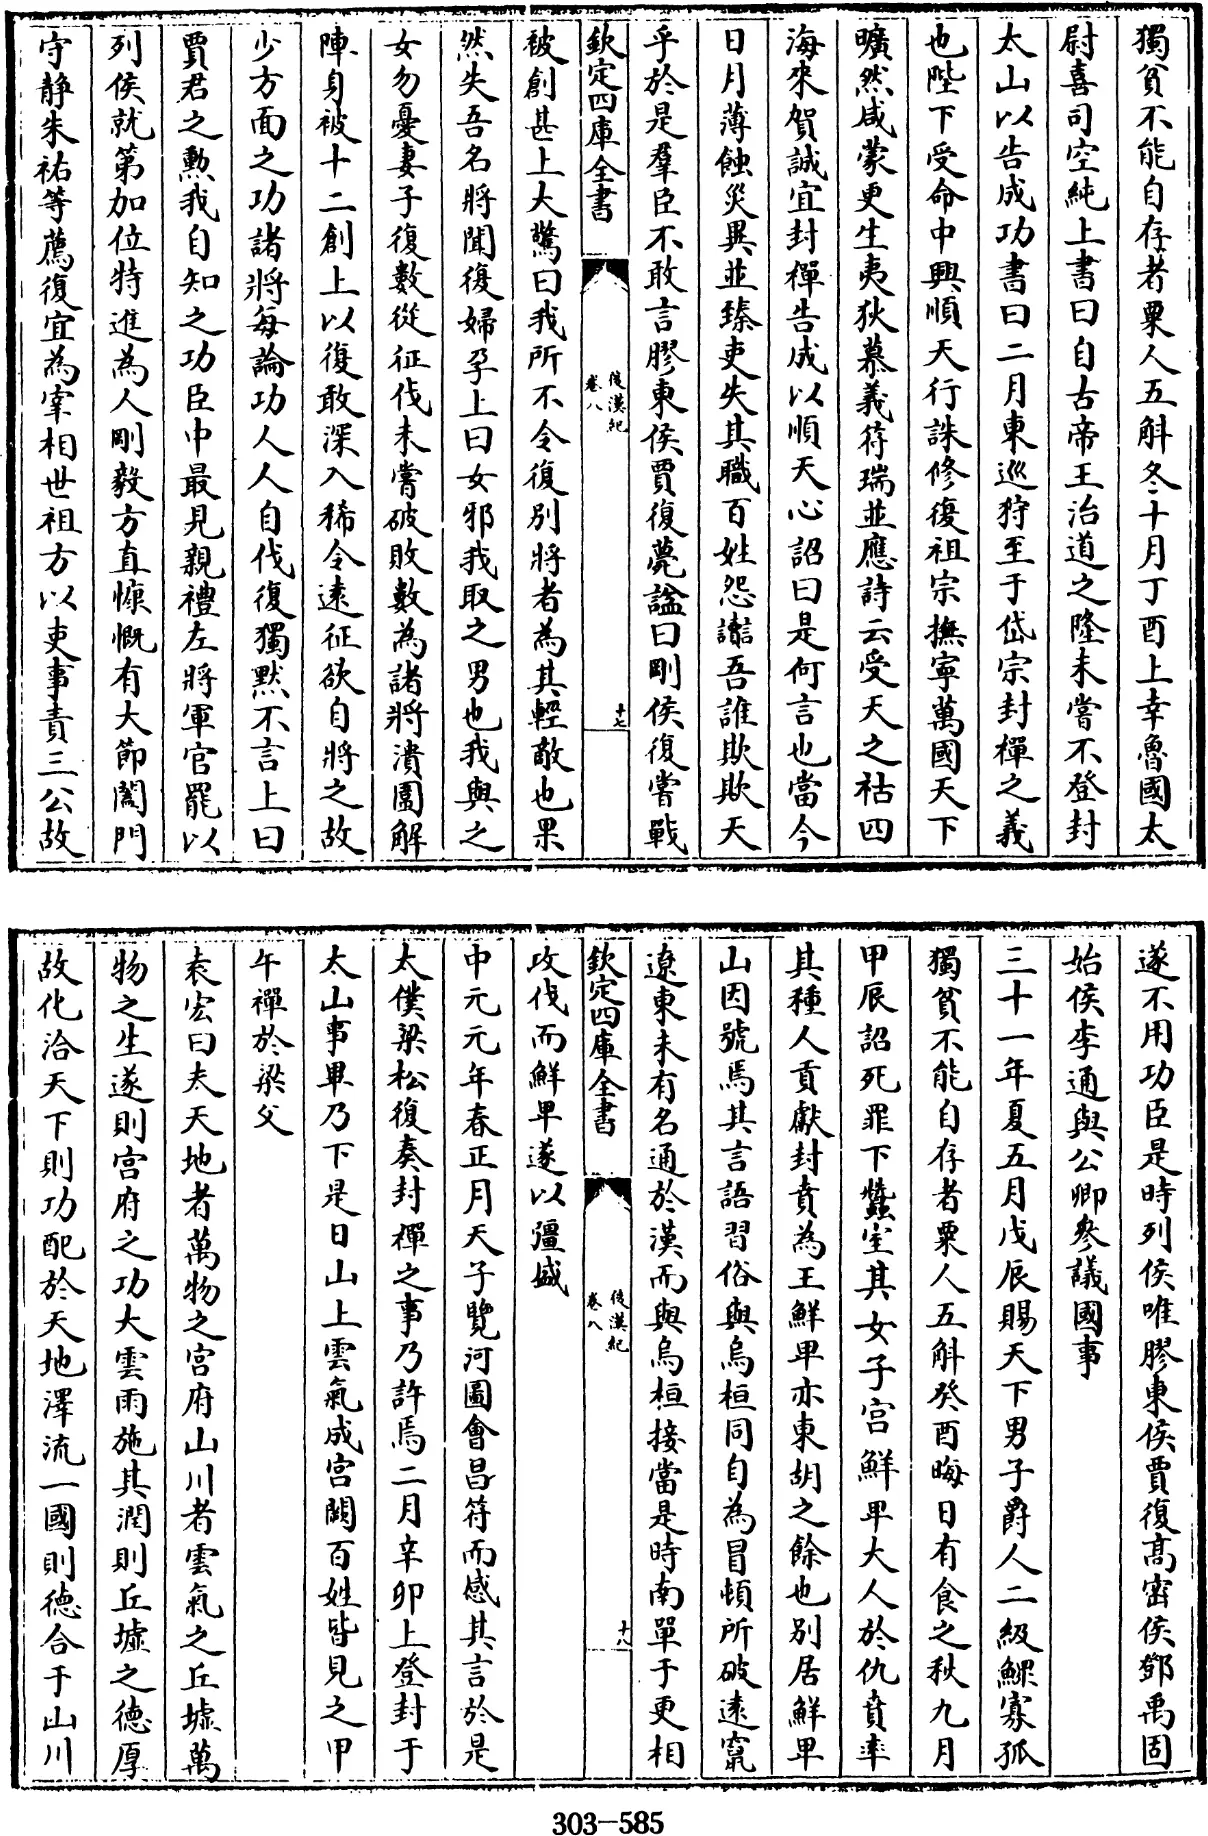 獨貧不能自存者粟人五斛冬十月丁酉上幸魯國太
尉喜司空純上書曰自古帝王治道之隆未嘗不登封
太山以告成功書曰二月東巡狩至于岱宗封禪之義
也陛下受命中興順天行誅修復祖宗撫寧萬國天下
曠然咸蒙更生夷狄慕義符瑞並應詩云受天之祜四
海來賀誠宜封禪告成以順天心詔曰是何言也當今
日月薄蝕災異並臻吏失其職百姓怨讟吾誰欺欺天
乎於是羣臣不敢言膠東侯賈復薨諡曰剛侯復嘗戰
欽定四庫全書
後漢紀
卷八
十七
被創甚上大驚曰我所不令復別將者為其輕敵也果
然失吾名將聞復婦孕上曰女邪我取之男也我與之
女勿憂妻子復數從征伐未嘗破敗數為諸將潰圍解
陣身被十二創上以復敢深入稀令遠征欲自將之故
少方面之功諸將每論功人人自伐復獨默不言上曰
賈君之勲我自知之功臣中最見親禮左將軍官罷以
列侯就第加位特進為人剛毅方直慷慨有大節闔門
守静朱祐等薦復宜為宰相世祖方以吏事責三公故
遂不用功臣是時列侯唯膠東侯賈復高密侯鄧禹固
始侯李通與公卿參議國事
三十一年夏五月戊辰賜天下男子爵人二級鰥寡孤
獨貧不能自存者粟人五斛癸酉晦日有食之秋九月
甲辰詔死罪下蠶室其女子宫鮮卑大人於仇賁率
其種人貢獻封賁為王鮮卑亦東胡之餘也別居鮮卑
山因號焉其言語習俗與烏桓同自為冒頓所破遠竄
遼東未有名通於漢而與烏桓接當是時南單于更相
欽定四庫全書
後漢紀
卷八
十八
攻伐而鮮卑遂以彊盛
中元元年春正月天子覽河圖會昌符而感其言於是
太僕梁松復奏封禪之事乃許焉二月辛卯上登封于
太山事畢乃下是日山上雲氣成宫闕百姓皆見之甲
午禪於梁父
袁宏曰夫天地者萬物之宫府山川者雲氣之丘墟萬
物之生遂則宫府之功大雲雨施其潤則丘墟之德厚
故化洽天下則功配於天地澤流一國則德合于山川
303-585